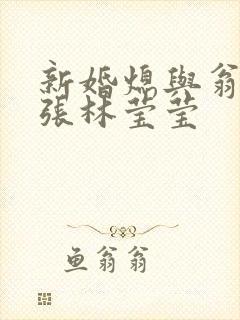 新婚熄與翁
張林莹莹
鱼翁翁